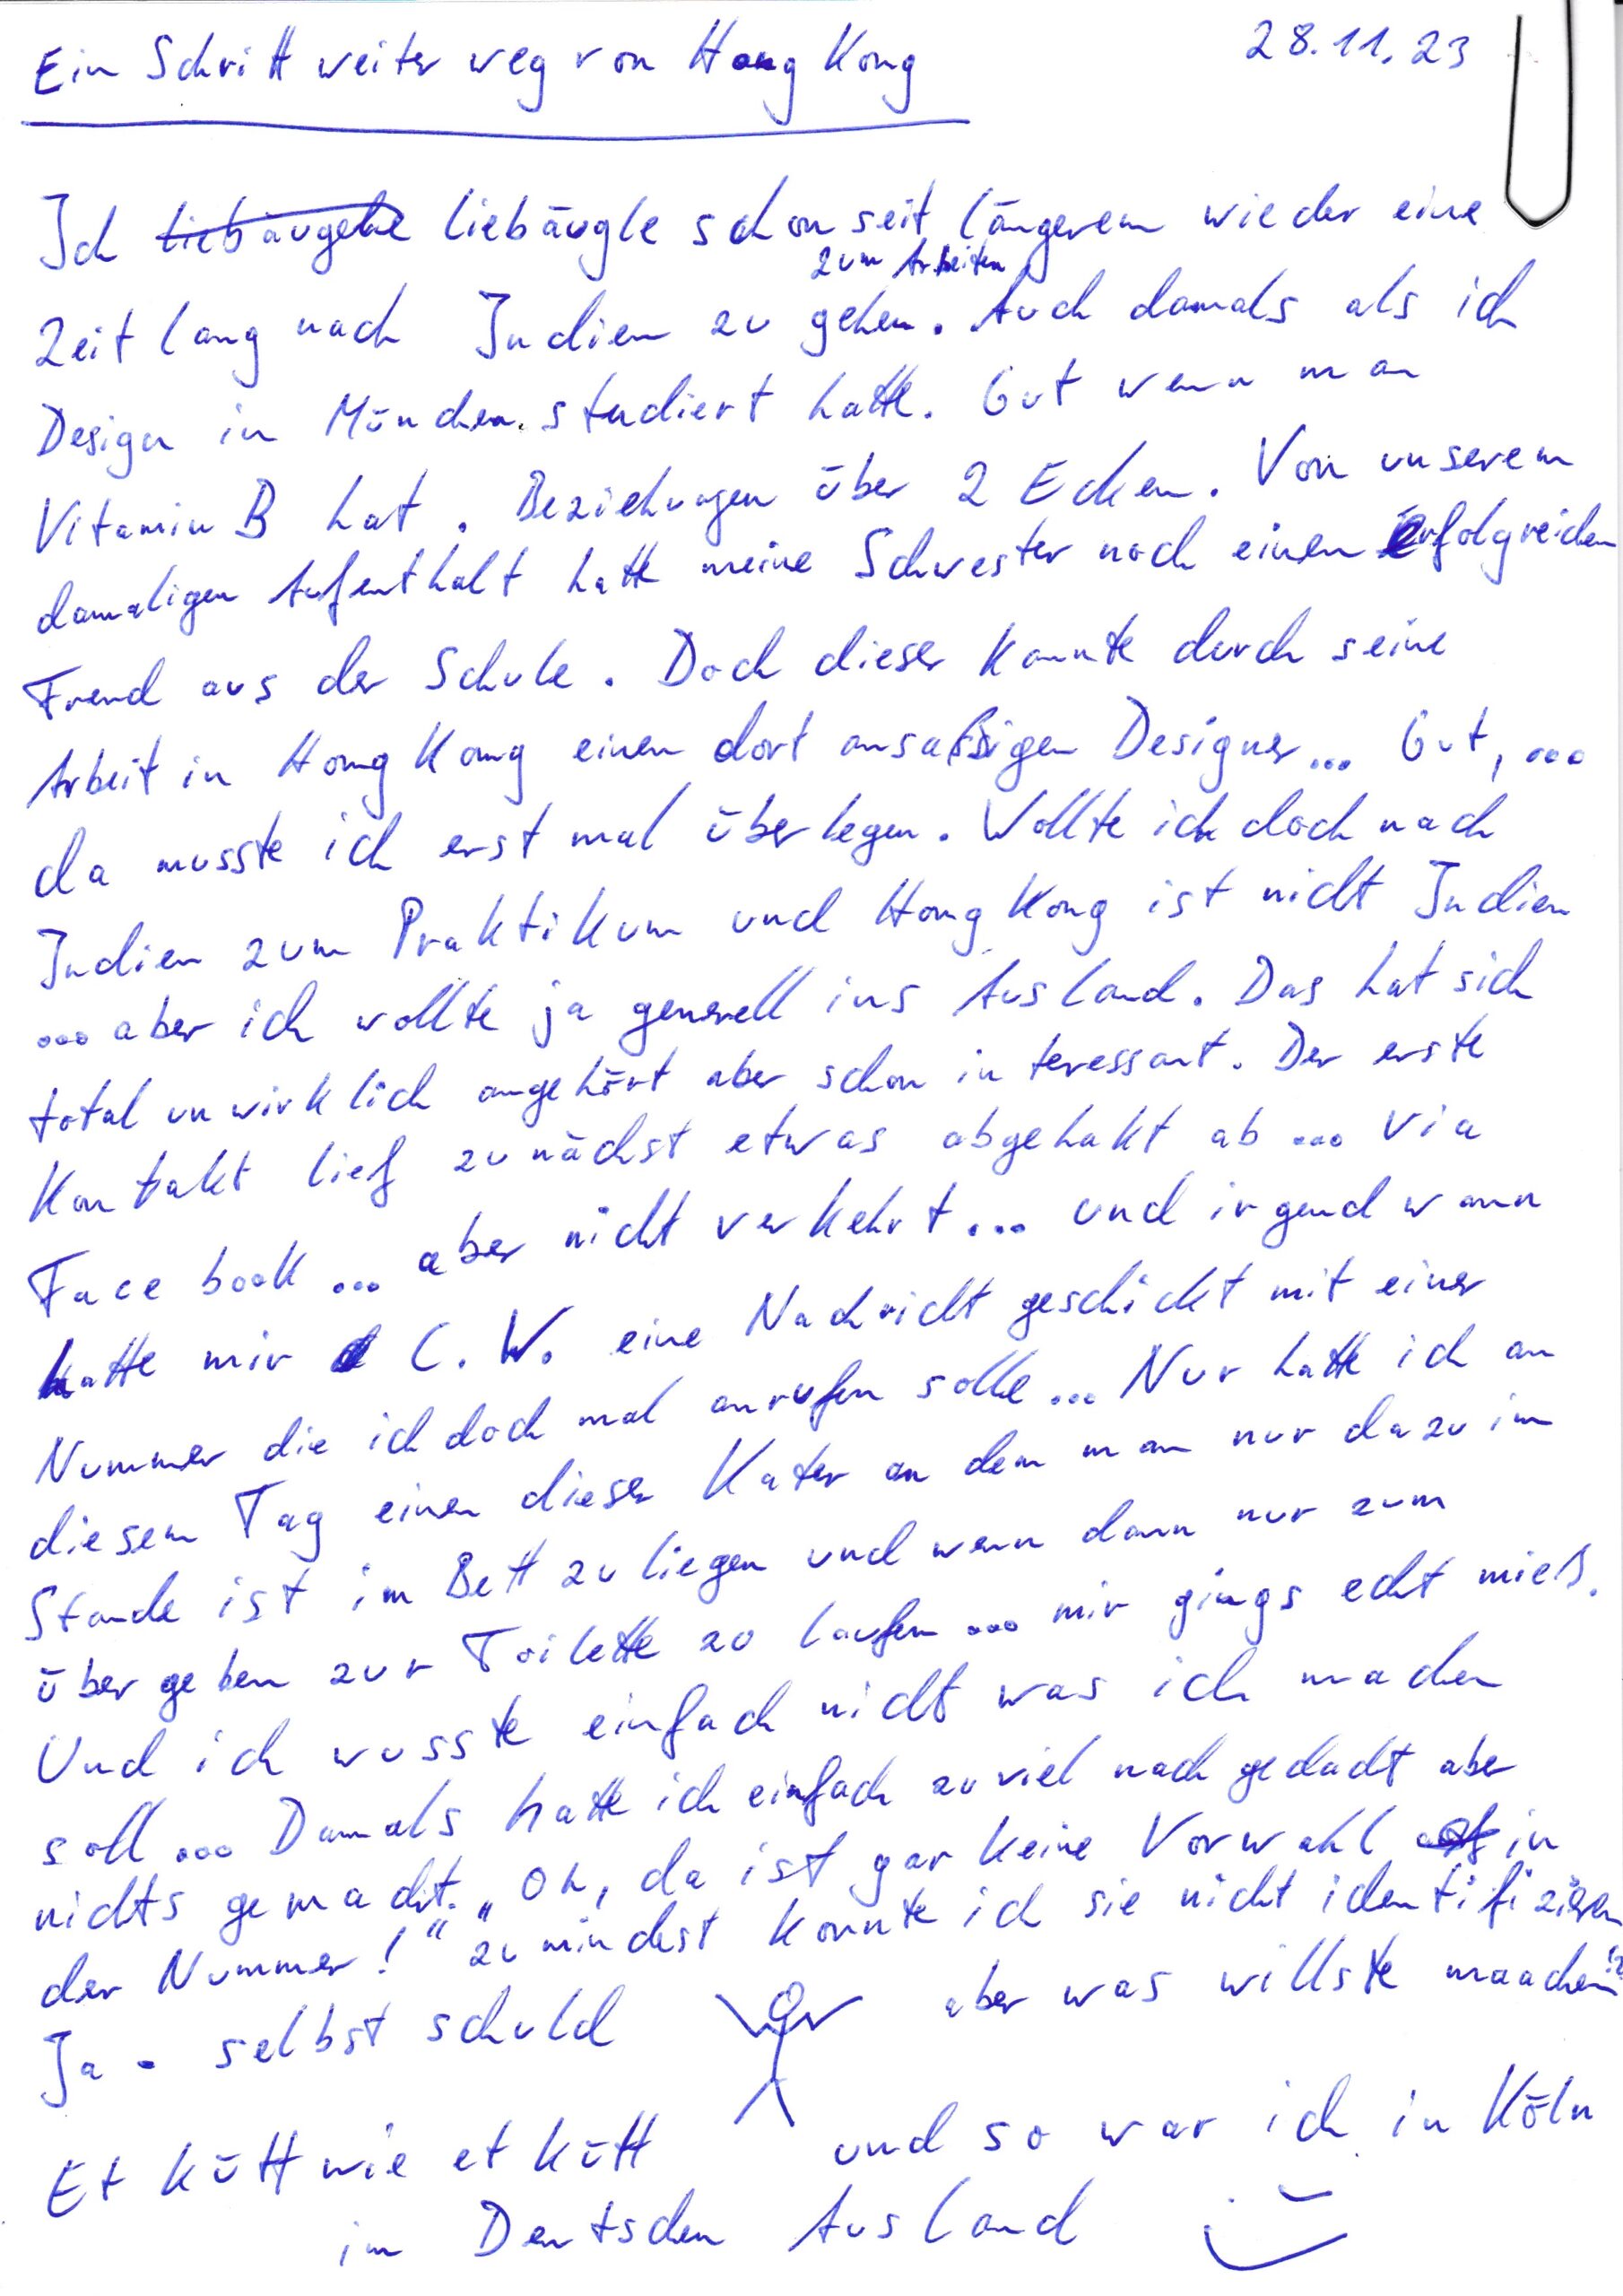 Ein Schritt weiter weg von Hong Kong
28.11.23
Ich liebäugele liebäugle schon seit längerem wieder eine
zum Arbeiten
Zeit lang nach Indien zu gehen. Auch damals als ich
Design in München studiert hatte. Gut wenn man
Vitamin B hat. Beziehungen über 2 Ecken. Von unserem
damaligen Aufenthalt hatte meine Schwester noch einen erfolgreichen
Freund aus der Schule. Doch dieser kannte durch seine
Arbeit in Hong Kong einen dort ansäßigen Designer... Gut, ...
da musste ich erst mal überlegen. Wollte ich doch nach
Indien zum Praktikum und Hong Kong ist nicht Indien
... aber ich wollte ja generell ins Ausland. Das hat sich
total unwirklich angehört aber schon interessant. Der erste
Kontakt lief zunächst etwas abgehakt ab ... via
Face book ... aber nicht verkehrt ... und irgendwann
hatte mir C. W. eine Nachricht geschickt mit einer
Nummer die ich doch mal anrufen solle ... Nur hatte ich an
diesem Tag einen dieser Kater an dem man nur dazu im
Stande ist im Bett zu liegen und wenn dann nur zum
übergeben zur Toilette zu laufen ... mir gings echt mieß.
Und ich wusste einfach nicht was ich machen
soll ... Damals hatte ich einfach zuviel nach gedacht aber
nichts gemacht. „Oh, da ist gar keine Vorwahl in
der Nummer!“ zumindest konnte ich sie nicht identifizieren
Ja - selbst schuld aber was willste maachen!?
Et kütt wie et kütt und so war ich in Köln
im Deutschen Ausland